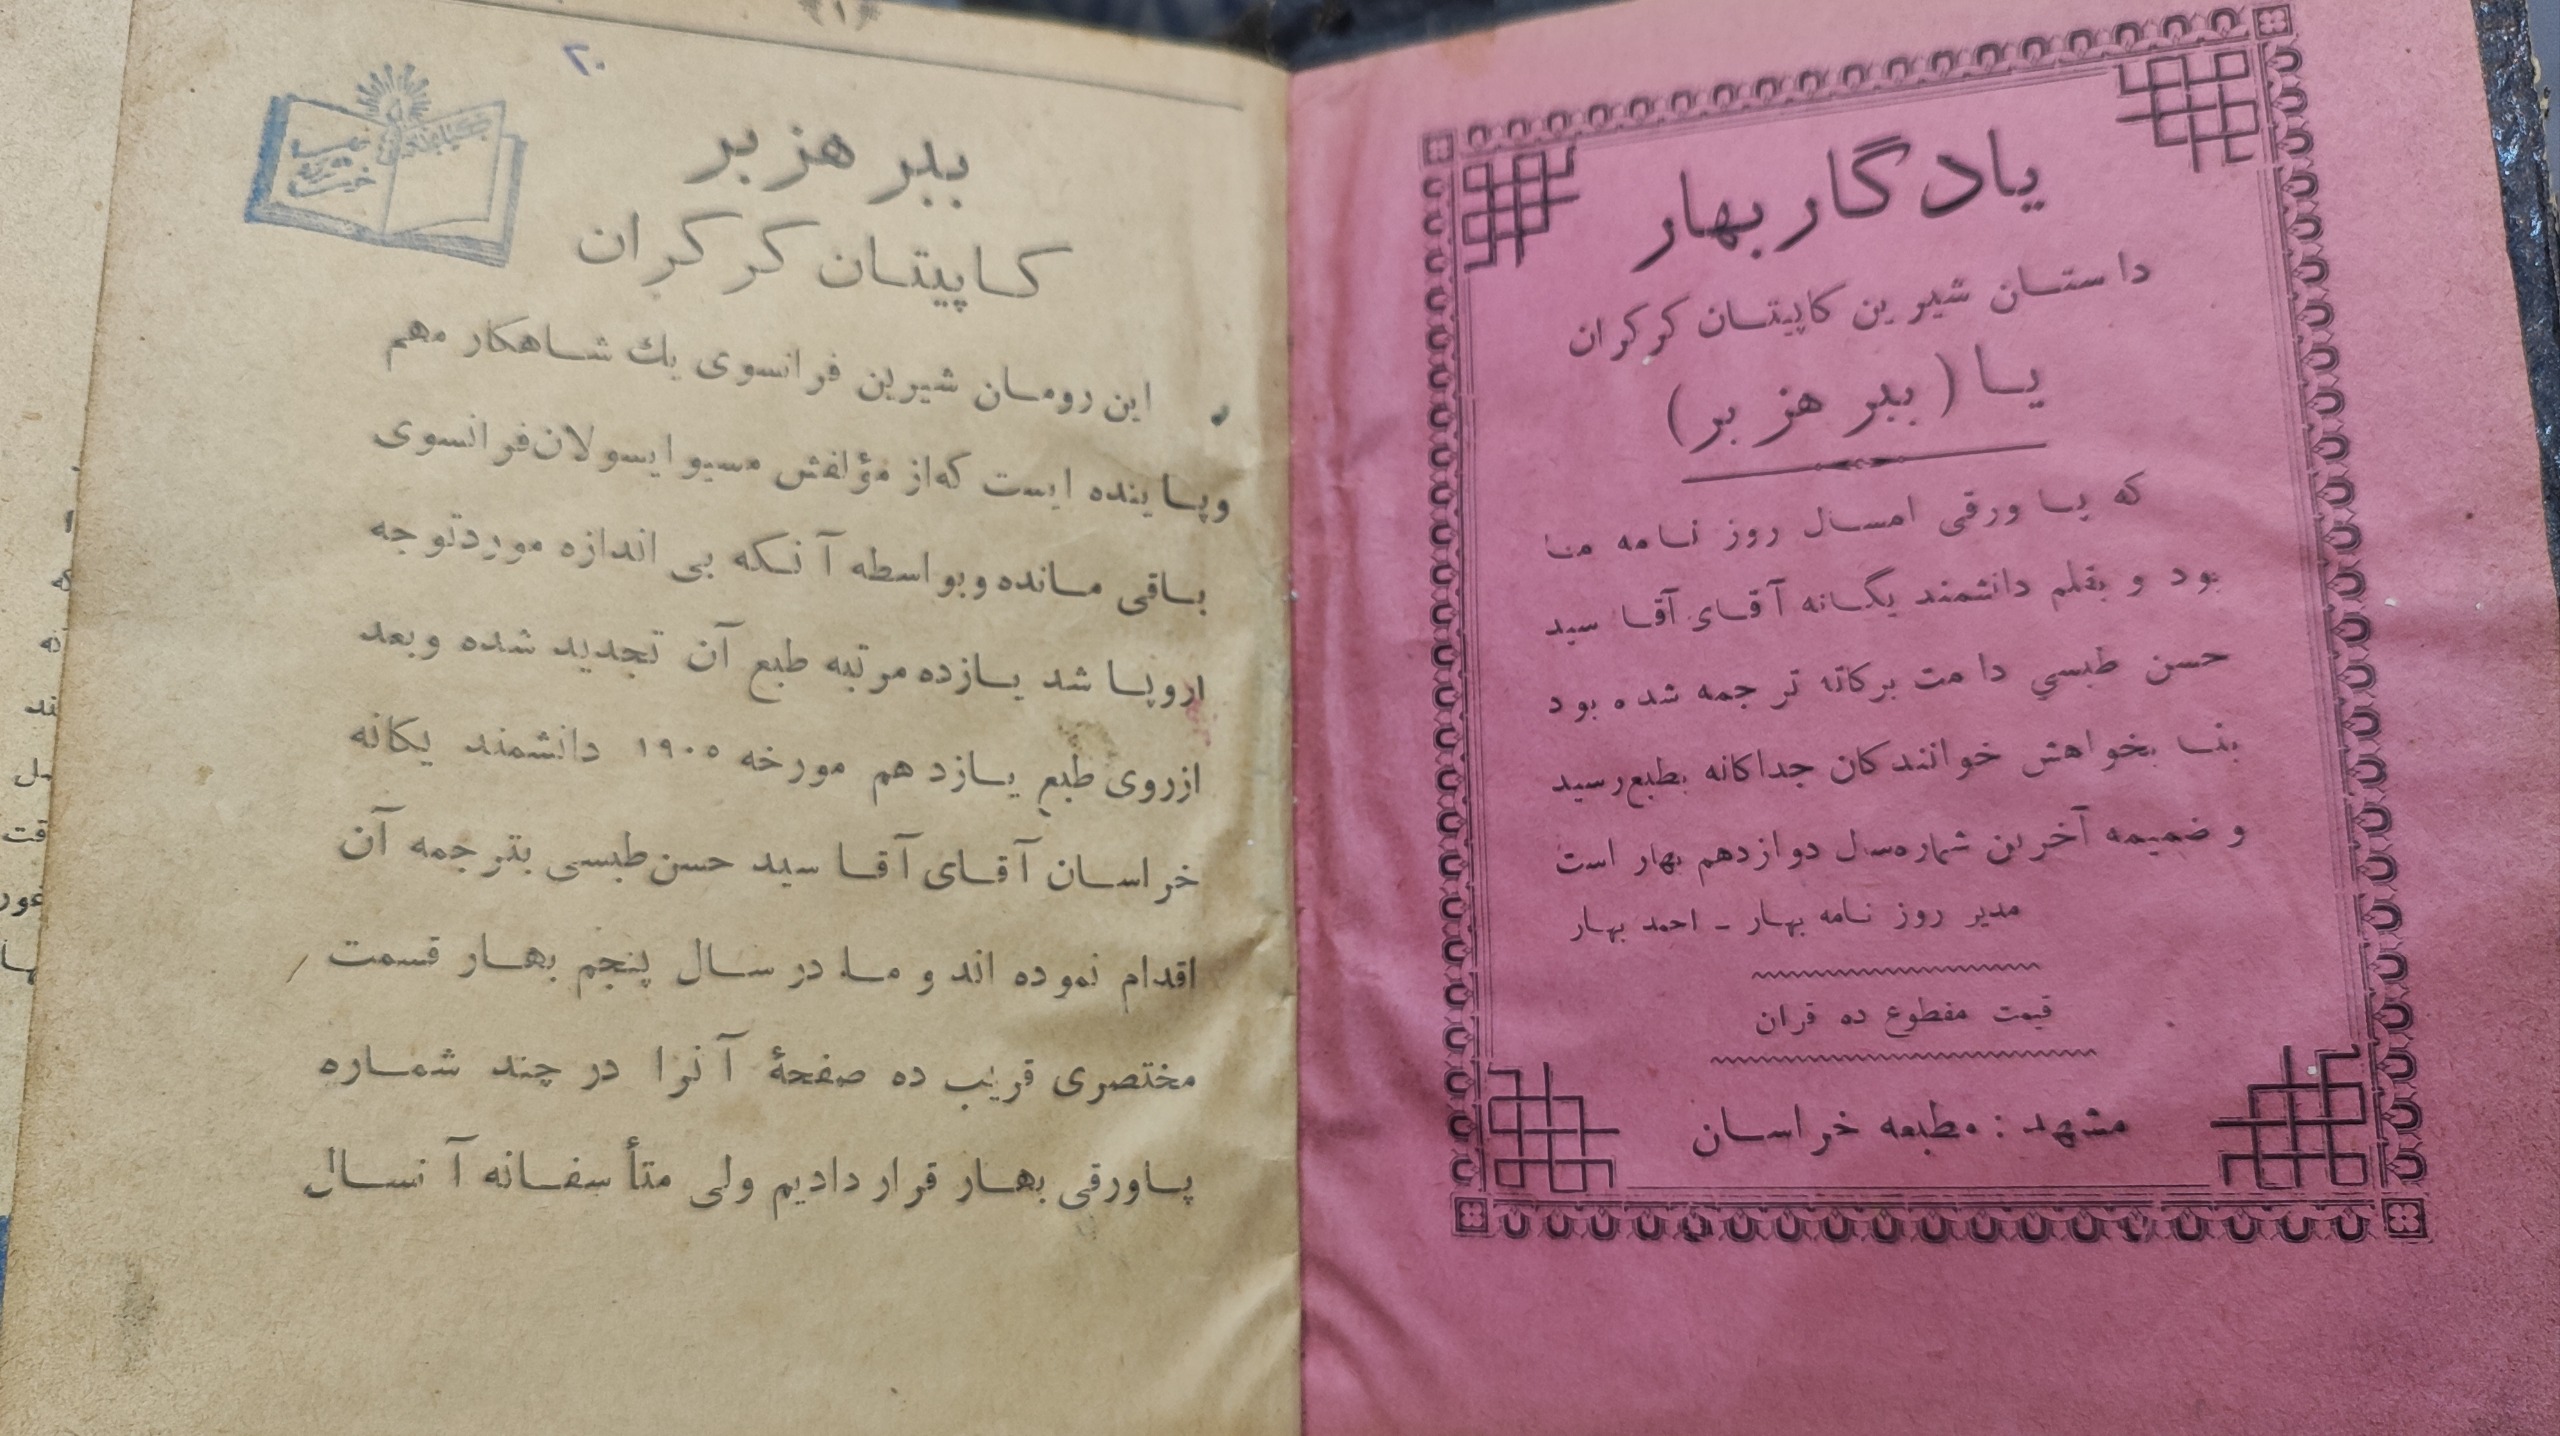 یادگار بهار
داستان شیرین کاپیتان کرکران
یا (ببر هزبر)
که پا ورقی امسال روز نامه ما
بود و بقلم دانشمند یگانه آقای آقا سید
حسن طبسي دامت برکاته ترجمه شده بود
بنا بخواهش خوانندکان جداکانه بطبع رسید
و ضمیمه آخرین شماره سال دوازدهم بهار است
مدیر روز نامه بهار ـ احمد بهار
قیمت مقطوع ده قران
مشهد : مطبعه خراسان
۱
۲۰
ببر هزبر
کاپیتان کرکران
این رومان شیرین فرانسوی یك شاهکار مهم
وپاینده ایست که از مؤلفش مسیو ایسولان فرانسوی
باقی مانده و بواسطه آنکه بی اندازه مورد توجه
اروپا شد یازده مرتبه طبع آن تجدید شده و بعد
از روی طبع یازدهم مورخه ۱۹۰۵ دانشمند یکانه
خراسان آقای آقا سید حسن طبسی بترجمه آن
اقدام نموده اند و ما در سال پنجم بهار قسمت
مختصری قریب ده صفحهٔ آنرا در چند شماره
پاورقی بهار قرار دادیم ولی متأسفانه آنسال